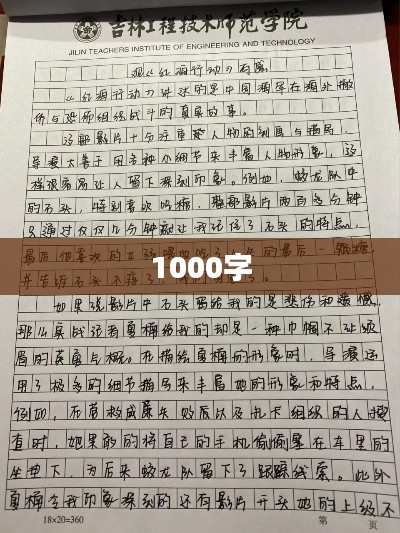 吉林工程技术师范学院
JILIN TEACHERS INSTITUTE OF ENGINEERING AND TECHNOLOGY
观《红海行动》有感
《红海行动》讲述的是中国海军在海外撤
侨与恐怖组织战斗的真实故事。
这部影片十分注重人物的刻画与描写,
导演善于用各种小细节来丰富人物形象,这
样很容易让人留下深刻印象。例如,蛟龙队中
的石头,特别喜欢吃糖,整部影片两百多分钟
只通过仅仅几分钟就让我记住了石头的特点,
最后
1000字
如果说影片中石头留给我的是悲伤和遗憾,
那么实战记者夏楠给我的却是一种巾帼不让须
眉的英雄气概。在描绘夏楠的形象时,导演运
用了极多的细节描写来丰富她的形象和特点,
例如,在营救威廉失败后以及扎卡组织的人搜
查时,她果断的将自己的手机偷偷塞在车里的
坐垫下,为后来蛟龙队留下了跟踪线索。此外
夏楠令我印象深刻的还有影片开头她的上级不
18×20=360
第 页